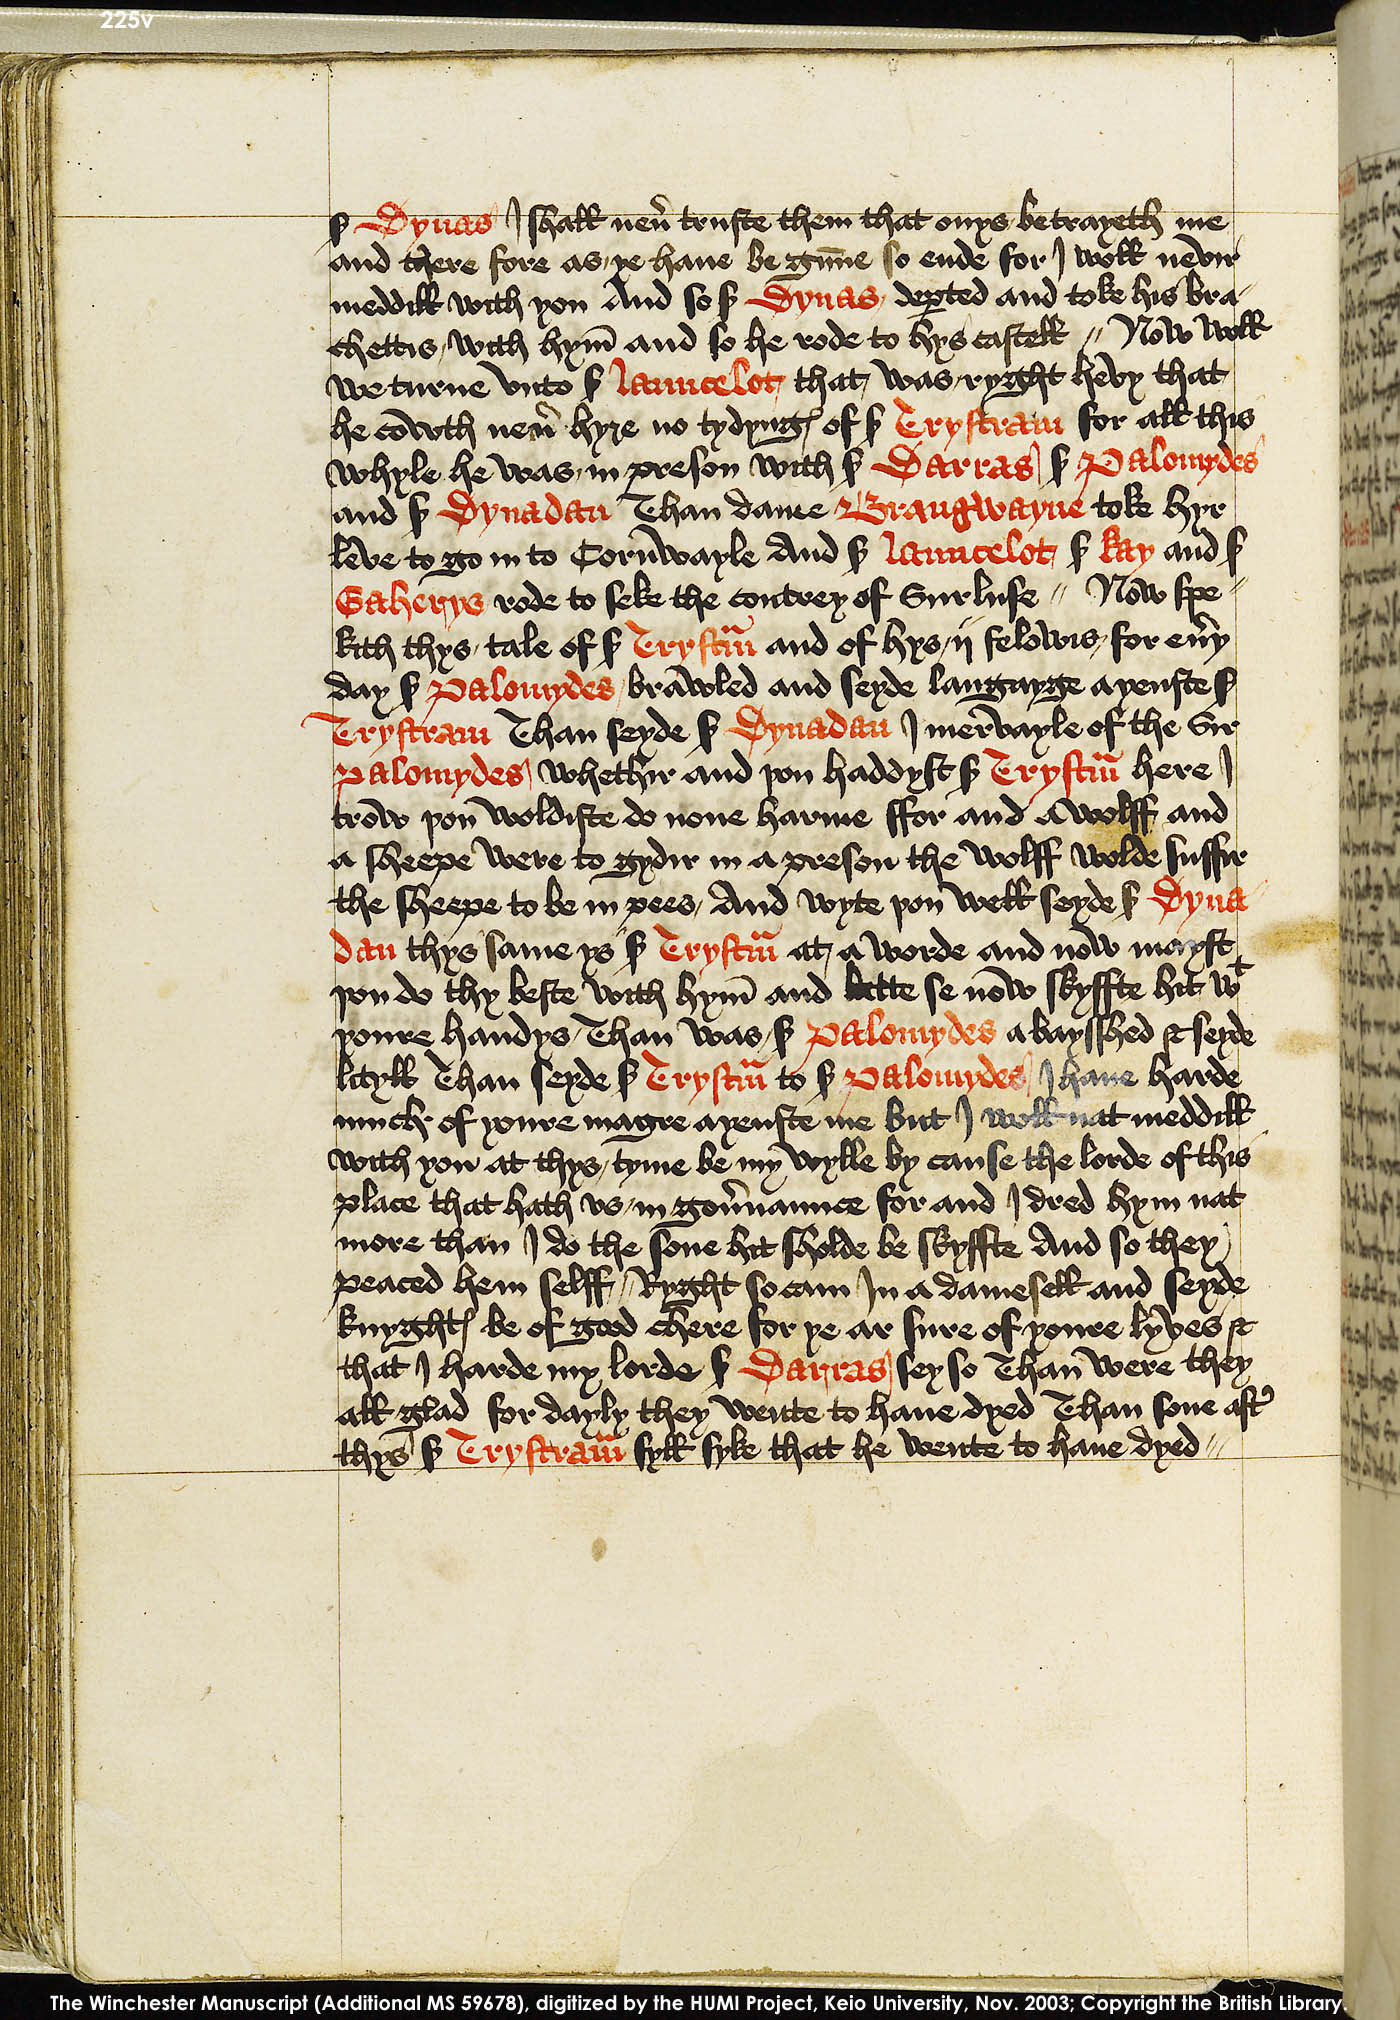 225v
ẜ Dynas I shall neu̅ truste them that onys betrayeth me
and there fore as ye haue be gun̅e so ende for I woll nevir
meddill with you And so ẜ Dynas deꝑted and toke his bra-
chettis with hym̅ and so he rode to hys castell // Now woll
we turne vnto ẜ launcelot that was ryght hevy that
he cowth neu̅ hyre no tydyngꝭ of ẜ Trystram for all this
whyle he was in preson with ẜ Darras ẜ Palomydes
and ẜ Dynadan Than dame Brangwayne toke hyr
leve to go in to Cornwayle And ẜ launcelot ẜ kay and ẜ
Gaherys rode to seke the contrey of Surluse // Now spe-
kith thys tale of ẜ Trystm̅ and of hys ij felowis for eu̅y
day ẜ Palomydes brawled and seyde langayge ayenste ẜ
Trystram Than seyde ẜ Dynadan I mervayle of the Sir
Palomydes whethir and þou haddyst ẜ Trystm̅ here I
trow þou woldiste do none harme ffor and a wolff and
a sheepe were to gydir in a preson the wolff wolde suffir
the sheepe to be in pees And wyte þou well seyde ẜ Dyna-
dan thys same ys ẜ Trystm̅ at a worde and now mayst
þou do thy beste with hym̅ and lette se now skyffte hit wᵗ
youre handys Than was ẜ Palomydes a bayshhed & seyde
lityll Than seyde ẜ Trystm̅ to ẜ Palomydes I haue harde
much of youre magre ayenste me but I woll nat meddill
with you at thys tyme be my wylle by cause the lorde of this
place that hath vs in gou̅naunce for and I dred hym nat
more than I do the sone hit sholde be skyffte And so they
peaced hem selff // Ryght so cam In a damesell and seyde
knyghtꝭ be of good chere for ye ar sure of youre lyves &
that I harde my lorde ẜ Darras sey so Than were they
all glad for dayly they wente to haue dyed Than sone aft̉
thys ẜ Trystram̅ fyll syke that he wente to haue dyed //
The Winchester Manuscript (Additional MS 59678), digitized by the HUMI Project, Keio University, Nov. 2003; Copyright the British Library.